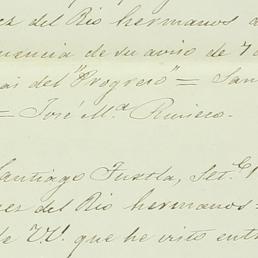 del Rio hermanos
de su aviso de 7 d
del "Progreso" = San
= José M.ª Riviero.
Santiago Tuxtla, Set.e
del Rio hermanos =
de VV. que he visto entr